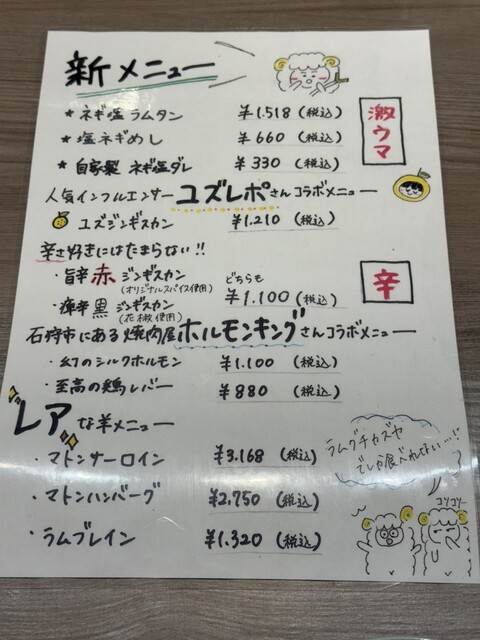 新メニュー
★ ネギ塩 ラムタン ¥1.518 (税込)
★ 塩ネギめし ¥660 (税込)
★ 自家製 ネギ塩ダレ ¥330 (税込)
激ウマ
人気インフルエンサー ユズレポさんコラボメニュー
ユズジンギスカン ¥1.210 (税込)
辛さ好きにはたまらない!!
・旨辛 赤 ジンギスカン
(オリジナルスパイス使用)
どちらも
¥1.100 (税込)
・痺辛 黒 ジンギスカン
(花椒使用)
辛
石狩市にある焼肉屋ホルモンキングさんコラボメニュー
・幻のシルクホルモン ¥1.100 (税込)
・至高の鶏レバー ¥880 (税込)
レアな羊メニュー
・マトンサーロイン ¥3.168 (税込)
・マトンハンバーグ ¥2.750 (税込)
・ラムブレイン ¥1.320 (税込)
ラムグチカズヤ
でしか食べれない…!
コソコソ…